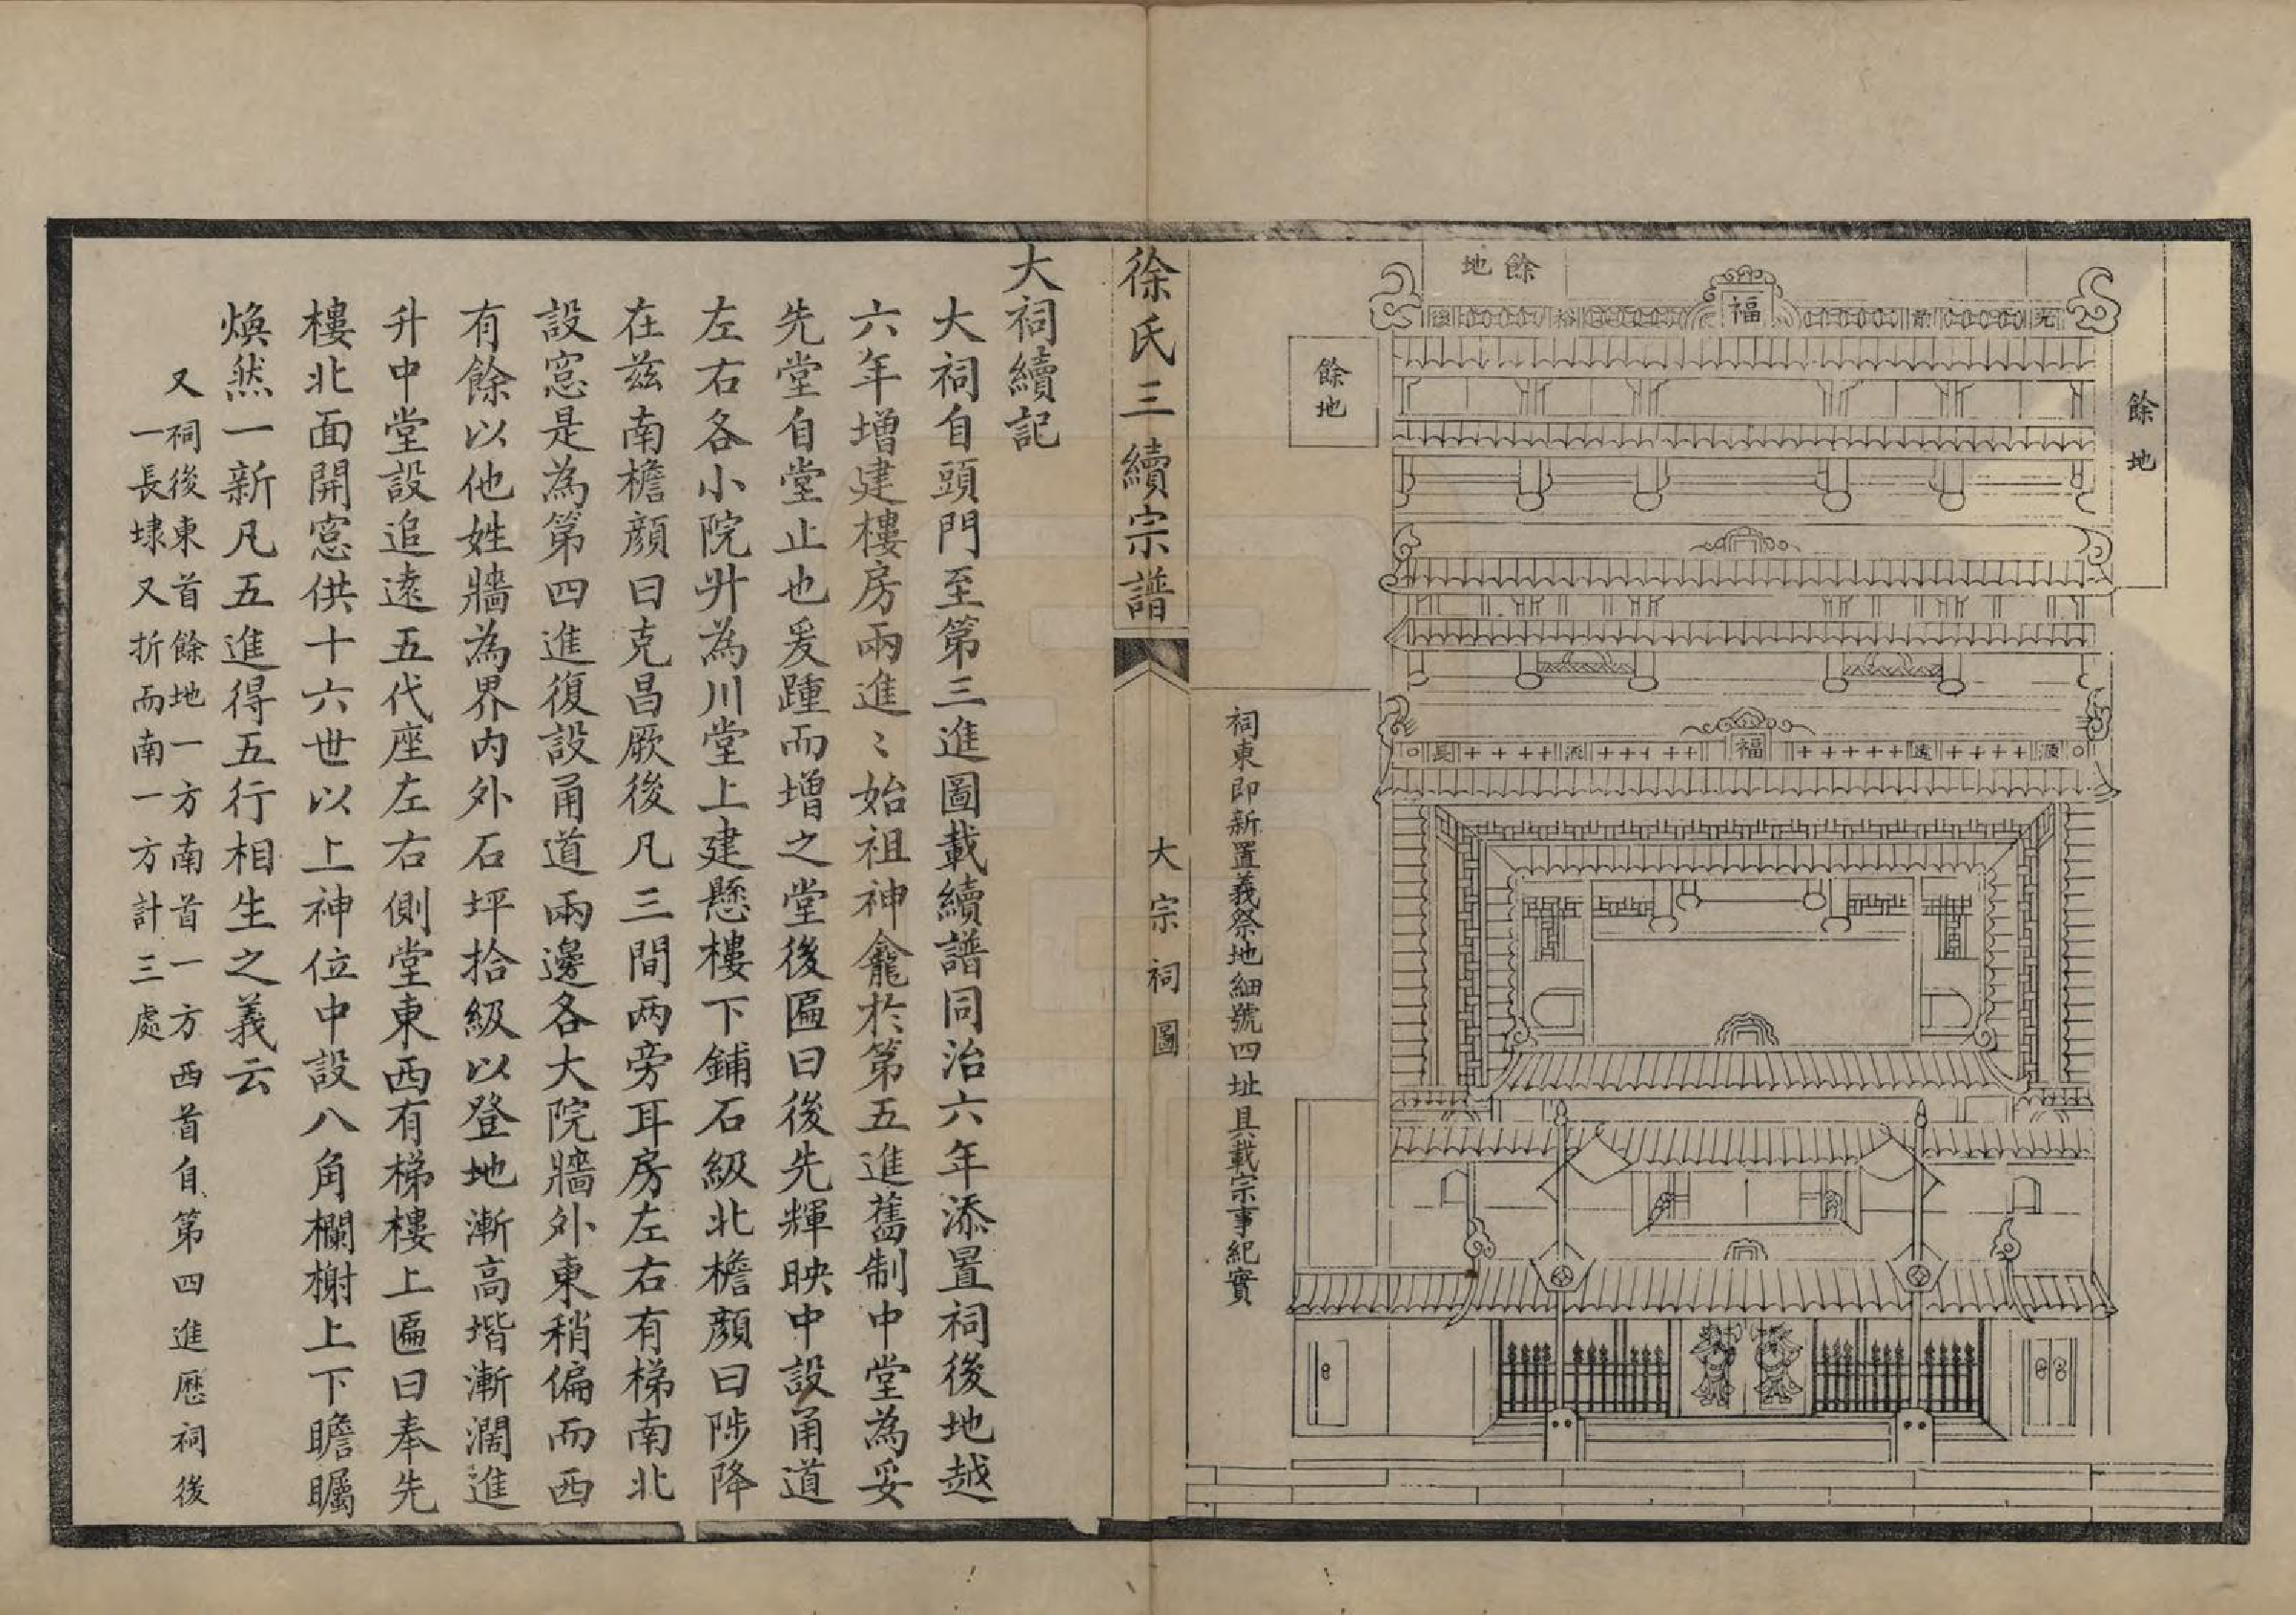 餘地
餘地
餘地
光前福裕後
源遠福流長
祠東即新置義祭地細號四址具載宗事紀實
徐氏三續宗譜
大宗祠圖
大祠續記
大祠自頭門至第三進圖載續譜同治六年添置祠後地越
六年增建樓房兩進〻始祖神龕於第五進舊制中堂為妥
先堂自堂止也爰踵而增之堂後匾曰後先輝映中設甬道
左右各小院升為川堂上建懸樓下鋪石級北檐顏曰陟降
在茲南檐顏曰克昌厥後凡三間兩旁耳房左右有梯南北
設窓是為第四進復設甬道兩邊各大院牆外東稍偏而西
有餘以他姓牆為界內外石坪拾級以登地漸高堦漸濶進
升中堂設追遠五代座左右側堂東西有梯樓上匾曰奉先
樓北面開窓供十六世以上神位中設八角欄榭上下瞻矚
煥然一新凡五進得五行相生之義云
又祠後東首餘地一方南首一方西首自第四進歷祠後
一長埭又折而南一方計三處